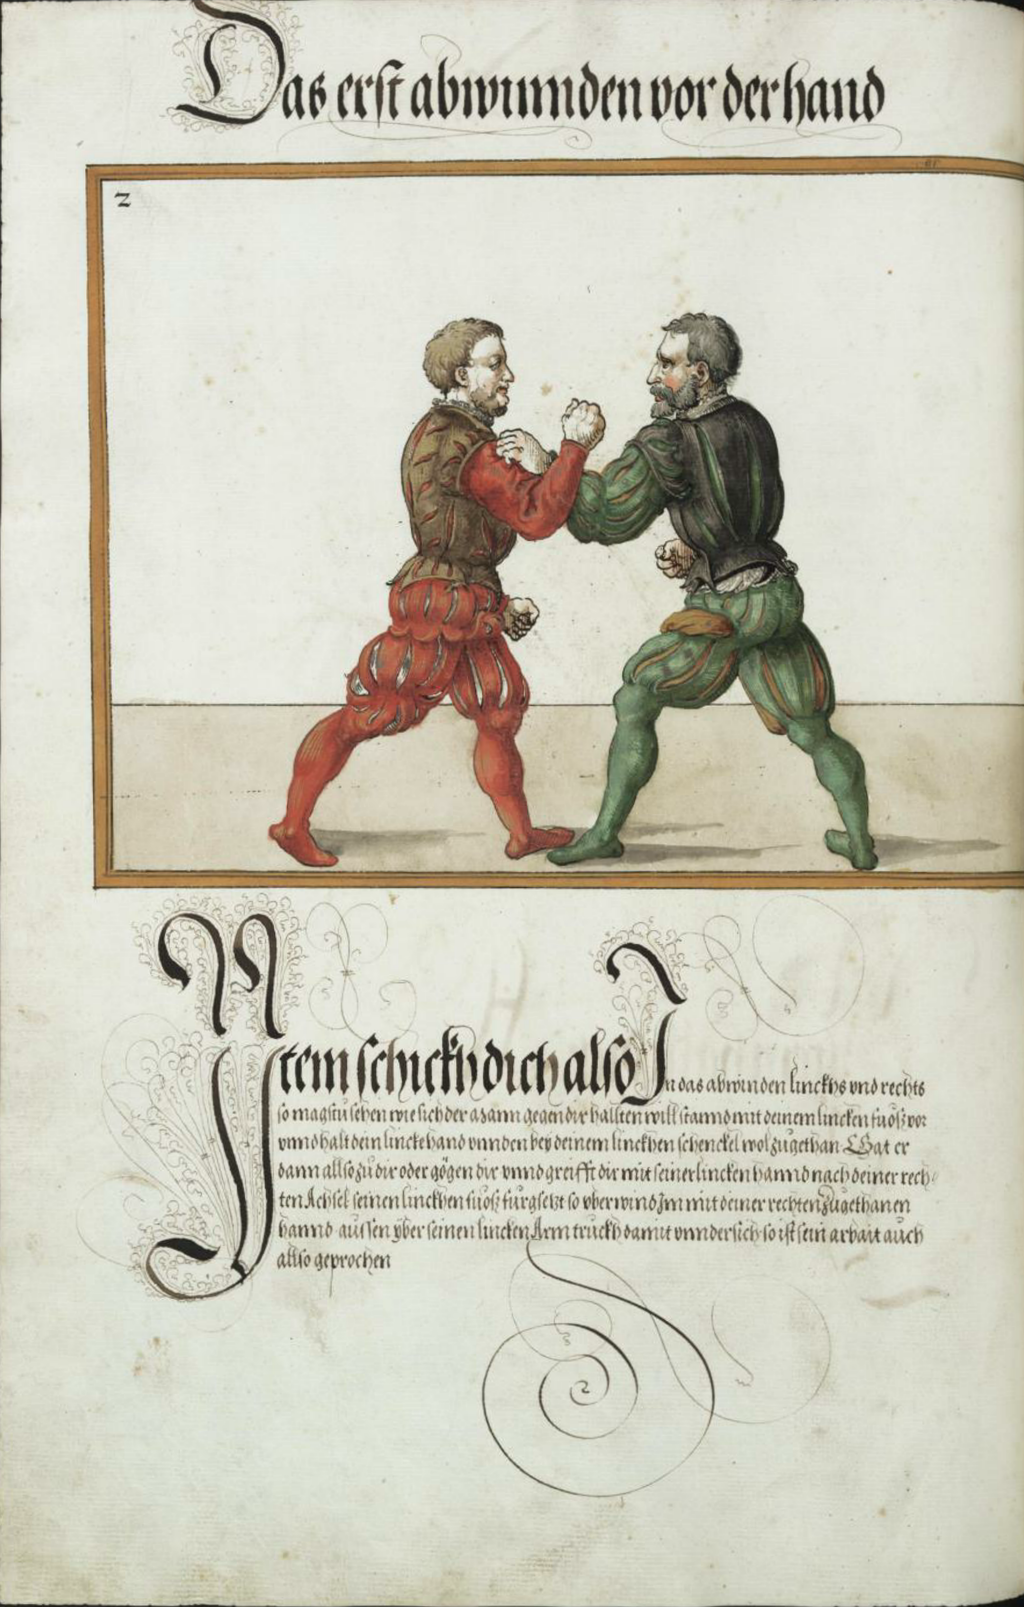 Das erst abwinnden vor der hand
2
Item schickh dich also In das abwinden linckhs vnd rechts
so magstu sehen wie sich der Mann gegen dir hallten will stannd mit deinem lincken fuosz vor
vnnd halt dein lincke hand vnnden bey deinem linckhen schenckel wol zugethan Gat er
dann allso zu dir oder gögen dir vnnd greifft dir mit seiner lincken hannd nach deiner rech-
ten Achsel seinen linckhen fuosz fürgsetzt so vberwind Im mit deiner rechten zugethanen
hannd aussen yber seinen lincken Arm truckh damit vnndersich so ist sein arbait auch
allso geprochen